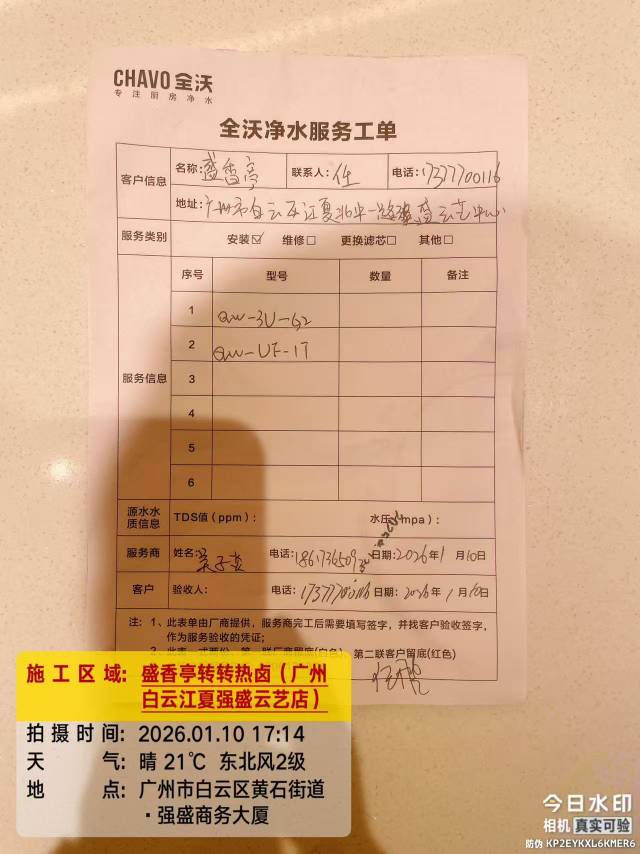 CHAVO 全沃
专注厨房净水
全沃净水服务工单
客户信息 名称: 盛香亭 联系人: 任 电话: 17377700116
地址: 广州市白云区江夏北 一路 强盛云艺中心
服务类别 安装☑ 维修□ 更换滤芯□ 其他□
服务信息 序号 型号 数量 备注
1 QW-3U-G2
2 QW-UF-1T
3
4
5
6
源水水质信息 TDS值（ppm）: 水压（mpa）:
服务商 姓名: 电话: 日期: 2026年1月10日
客户 验收人: 电话: 日期: 2026年1月10日
注: 1、此表单由厂商提供，服务商完工后需要填写签字，并找客户验收签字，
作为服务验收的凭证;
2、此表一式两份，第一联厂商留底(白色)，第二联客户留底(红色)
施工区域: 盛香亭转转热卤（广州
白云江夏强盛云艺店）
拍摄时间: 2026.01.10 17:14
天气: 晴 21℃ 东北风2级
地点: 广州市白云区黄石街道
·强盛商务大厦
今日水印
相机 真实可验
防伪 KP2EYKXL6KMER6